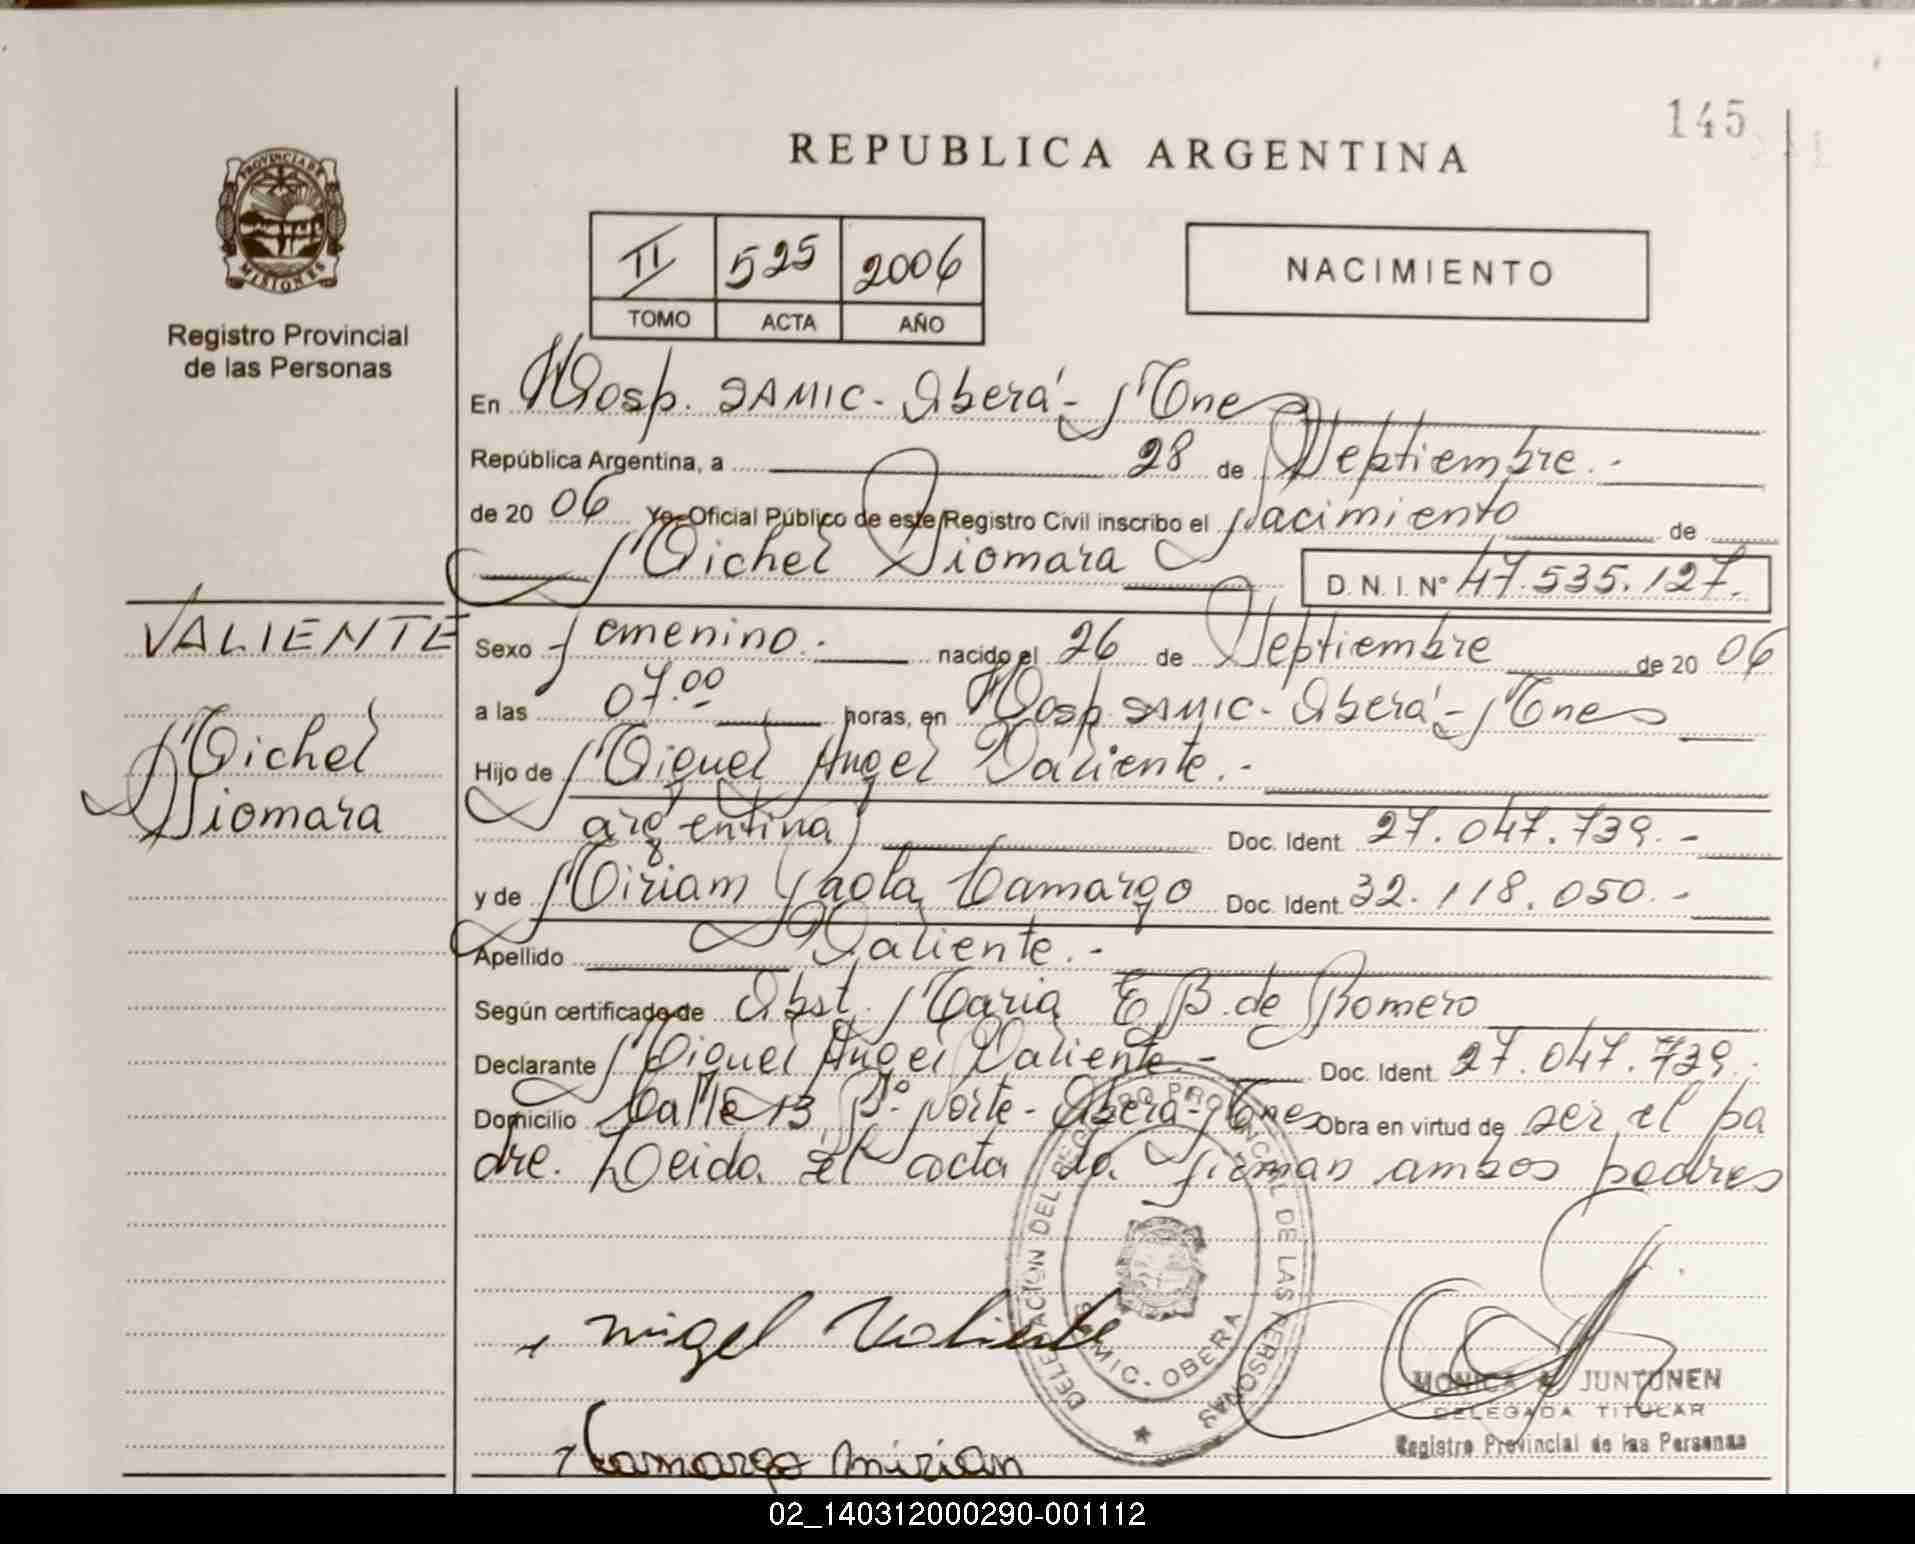 145
REPUBLICA ARGENTINA
PROVINCIA DE
MISIONES
Registro Provincial
de las Personas
II 525 2006
TOMO ACTA AÑO
NACIMIENTO
En Hosp. SAMIC - Oberá - Mnes
República Argentina, a 28 de Septiembre.-
de 2006 Yo, Oficial Público de este Registro Civil inscribo el Nacimiento de
Michel Siomara D. N. I. Nº 47.535.127.
VALIENTE
Michel
Siomara
Sexo femenino.- nacido el 26 de Septiembre de 2006
a las 07.00 horas, en Hosp. SAMIC - Oberá - Mnes
Hijo de Miguel Angel Valiente.-
argentina Doc. Ident. 27.047.739.-
y de Miriam Paola Camargo Doc. Ident. 32.118.050.-
Apellido Valiente.-
Según certificado de Obst. Maria E B. de Romero
Declarante Miguel Angel Valiente.- Doc. Ident. 27.047.739.-
Domicilio Calle 13 Bº Norte - Oberá - Mnes Obra en virtud de ser el pa
dre. Leida el acta la firman ambos padres
DELEGACION DEL REGISTRO PROVINCIAL DE LAS PERSONAS
SAMIC. OBERA
migel Valiente
Camargo mirian
MONICA JUNTUNEN
DELEGADA TITULAR
Registro Provincial de las Personas
02_140312000290-001112